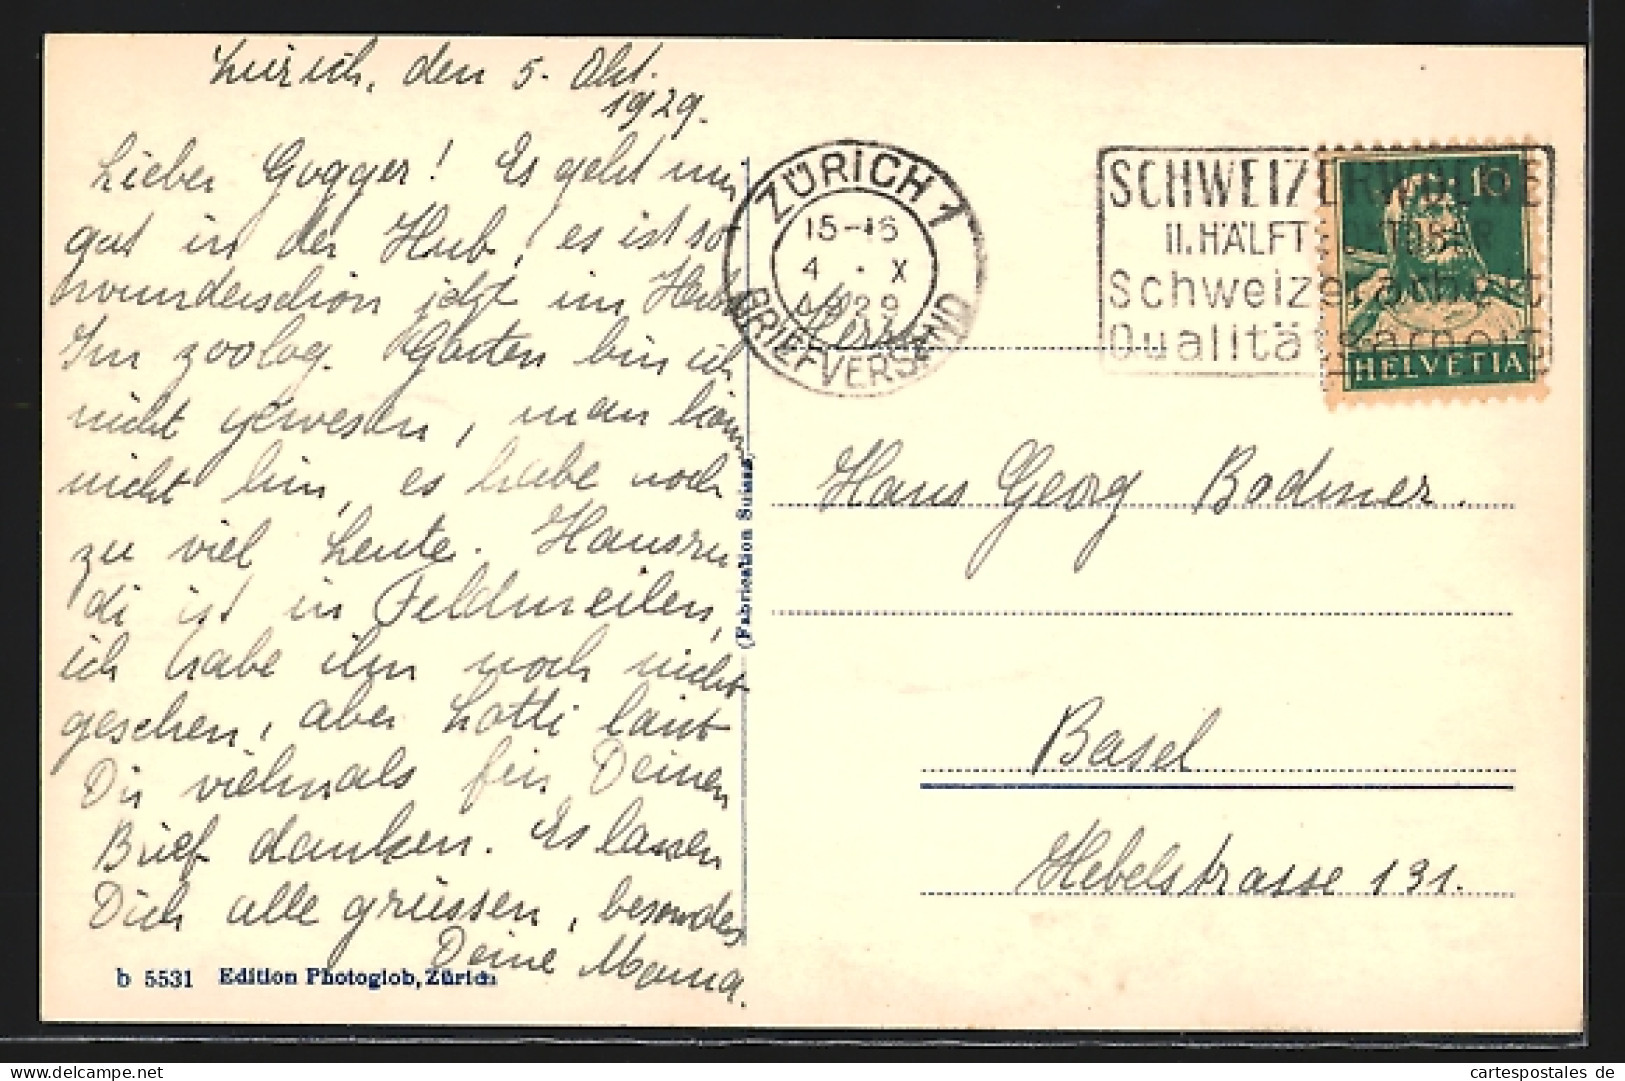 Zürich, den 5. Okt.
1929.
Lieber Gogger! Es geht mir
gut in der Hub, es ist so
wunderschön jetzt im Herbst
Im zoolog. Garten bin ich
nicht gewesen, man kann
nicht hin, es habe noch
zu viel Leute. Hansru
di ist in Feldmeilen,
ich habe ihn noch nicht
gesehen, aber Lotti lässt
Dir vielmals für Deinen
Brief danken. Es lassen
Dich alle grüssen, besonders
Deine Mama.
b 5531 Edition Photoglob, Zürich
(Fabrication Suisse)
ZÜRICH 1
15-16
4 · X
1929
BRIEFVERSAND
SCHWEIZERWOCHE
II. HÄLFTE OKTOBER
Schweizerarbeit
Qualitätsarbeit
10
HELVETIA
Herrn
Hans Georg Bodmer.
Basel
Hebelstrasse 131.
cartespostales de